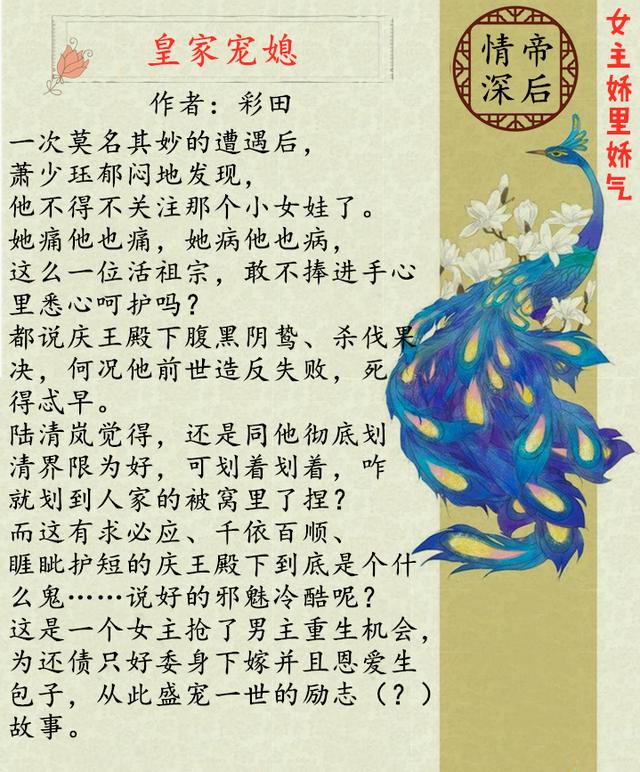 皇家宠媳
作者：彩田
一次莫名其妙的遭遇后，
萧少珏郁闷地发现，
他不得不关注那个小女娃了。
她痛他也痛，她病他也病，
这么一位活祖宗，敢不捧进手心
里悉心呵护吗？
都说庆王殿下腹黑阴鸷、杀伐果
决，何况他前世造反失败，死
得忒早。
陆清岚觉得，还是同他彻底划
清界限为好，可划着划着，咋
就划到人家的被窝里了捏？
而这有求必应、千依百顺、
睚眦护短的庆王殿下到底是个什
么鬼……说好的邪魅冷酷呢？
这是一个女主抢了男主重生机会，
为还债只好委身下嫁并且恩爱生
包子，从此盛宠一世的励志（？）
故事。
帝后
情深
女主娇里娇气